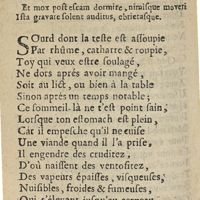 Et mox post escam dormire, nimisque moveri
Ista gravare solent auditus, ebrietasque.
SOurd dont la teste est assoupie
Par rhûme, catharre & roupie,
Toy qui veux estre soulagé,
Ne dors aprés avoir mangé,
Soit au lict, ou bien à la table
Sinon aprés un temps notable;
Ce sommeil-là ne t'est point sain,
Lorsque ton estomach est plein,
Car il empesche qu'il ne cuise
Une viande quand il l'a prise,
Il engendre des cruditez,
D'où naissent des ventositez,
Des vapeurs épaisses, visqueuses,
Nuisibles, froides & fumeuses,
Qui s'élevant jusqu'au cerveau